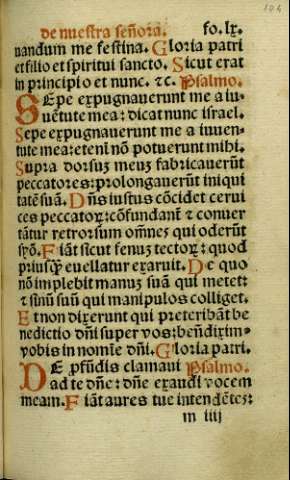 de nuestra señora. fo.lx.
uandum me festina. Gloria patri
et filio et spiritui sancto. Sicut erat
in principio et nunc. ⁊c. Psalmo.
SEpe expugnauerunt me a iu-
uẽtute mea: dicat nunc israel.
Sepe expugnauerunt me a iuuen-
tute mea: eteni nõ potuerunt mihi.
Supra dorsuȝ meuȝ fabricauerũt
peccatores: prolongauerũt iniqui
tatẽ suã. Dñs iustus cõcidet cerui
ces peccatoꝝ: cõfundant̃ ⁊ conuer
tãtur retrorsum om̃nes qui oderũt
syõ. Fiãt sicut fenuȝ tectoꝝ: quod
priusq̃ȝ euellatur exaruit. De quo
nõ implebit manuȝ suã qui metet:
⁊ sinũ suũ qui manipulos colliget.
Et non dixerunt qui preteribãt be
nedictio dñi super vos: bñdixim⁹
vobis in nomĩe dñi. Gloria patri.
DE ꝓfũdis clamaui Psalmo.
ad te dñe: dñe exaudi vocem
meam. Fiãt aures tue intendẽtes:
m iiij